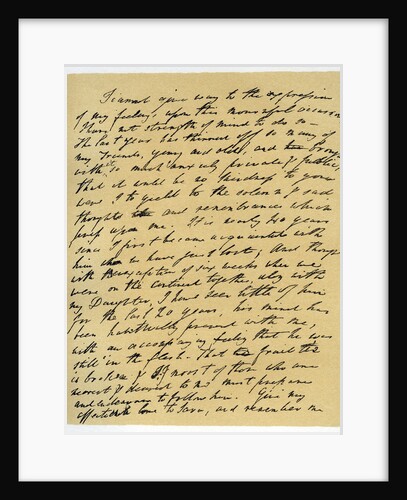 I cannot give way to the expression
of my feelings upon this mournful occasion
I have not strength of mind to do so —
The last year has thinned off so many of
my Friends, young and old, and brought
with it so much anxiety private & public,
that it would be no kindness to you
were I to yield to the solemn & sad
thoughts and remembrances which
press upon me. It is nearly 40 years
since I first became acquainted with
him whom we have just lost; and though
with the exception of six weeks when we
were on the Continent together, along with
my Daughter, I have seen little of him
for the last 20 years, his mind has
been habitually present with me,
with an accompanying feeling that he was
still in the flesh. That frail tie
is broken & I, & most of those who are
nearest & dearest to me must prepare
and endeavour to follow him. Give my
affectionate love to Sara, and remember me